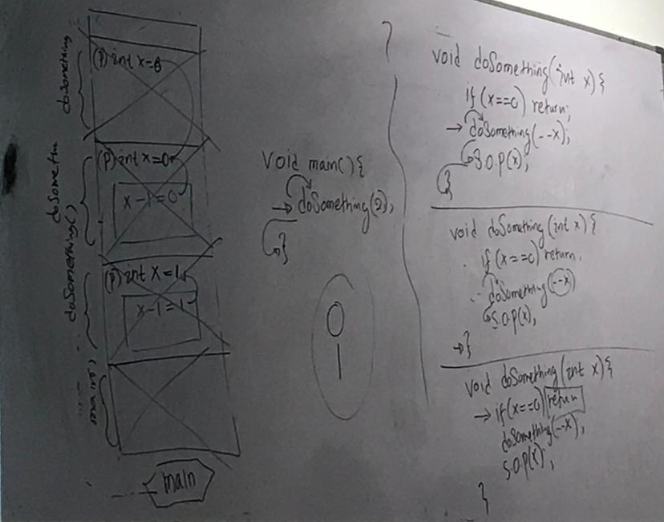 doSomething
(P) int x=0
doSomethin
(P) int x=0
x-1=0
doSomething()
(P) int x=1
x-1=1
main()
main
void main(){
doSomething(2);
}
0
1
void doSomething(int x){
if(x==0) return;
→ doSomething(--x);
S.O.P(x);
}
void doSomething(int x){
if(x==0) return.
doSomething(--x)
S.O.P(x),
→ }
void doSomething(int x){
→ if(x==0) return
doSomething(--x),
S.O.P(x),
}